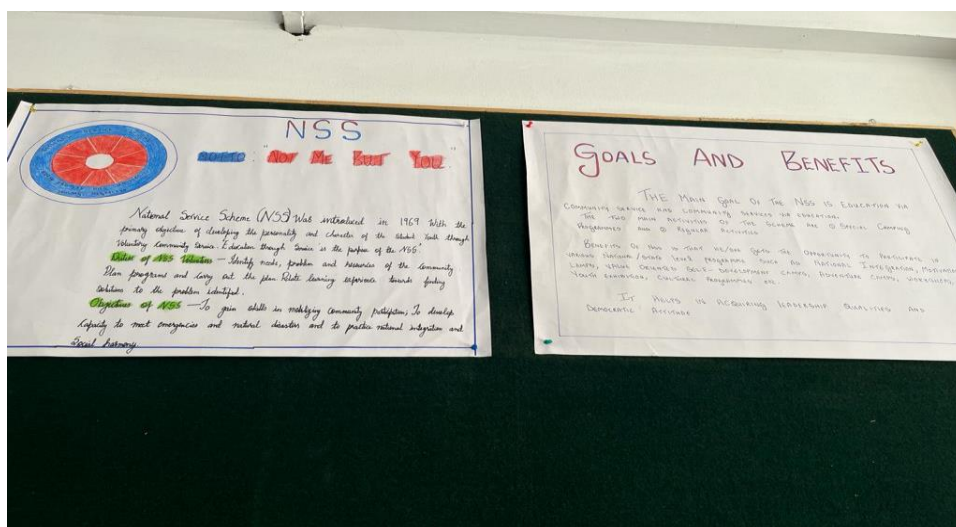 NSS
MOTTO : "NOT ME BUT YOU"
National Service Scheme (NSS) Was introduced in 1969 With the
primary objective of developing the personality and character of the Student Youth through
Voluntary Community Service. Education through Service is the purpose of the NSS.
Duties of NSS Volunteers — Identify needs, problem and resources of the community
Plan programs and Carry out the plan Relate learning experience towards finding
solutions to the problem identified.
Objectives of NSS — To gain skills in mobilizing community participation; To develop
Capacity to meet emergencies and natural disasters and to practice national integration and
Social harmony
GOALS AND BENEFITS
THE MAIN GOAL OF THE NSS IS EDUCATION VIA
COMMUNITY SERVICE AND COMMUNITY SERVICES VIA EDUCATION.
THE TWO MAIN ACTIVITIES OF THE SCHEME ARE ① SPECIAL CAMPING
PROGRAMMES AND ② REGULAR ACTIVITIES
BENEFITS OF NSS IS THAT HE/SHE GETS THE OPPORTUNITY TO PARTICIPATE IN
VARIOUS PROGRAMS SUCH AS NATIONAL INTEGRATION, MOTIVATION
CAMPS, SELF-DEVELOPMENT CAMPS, ADVENTURE CAMPS, WORKSHOPS,
YOUTH EXHIBITION, CULTURAL PROGRAMMES etc.
IT HELPS IN ACQUIRING LEADERSHIP QUALITIES AND
DEMOCRATIC ATTITUDE